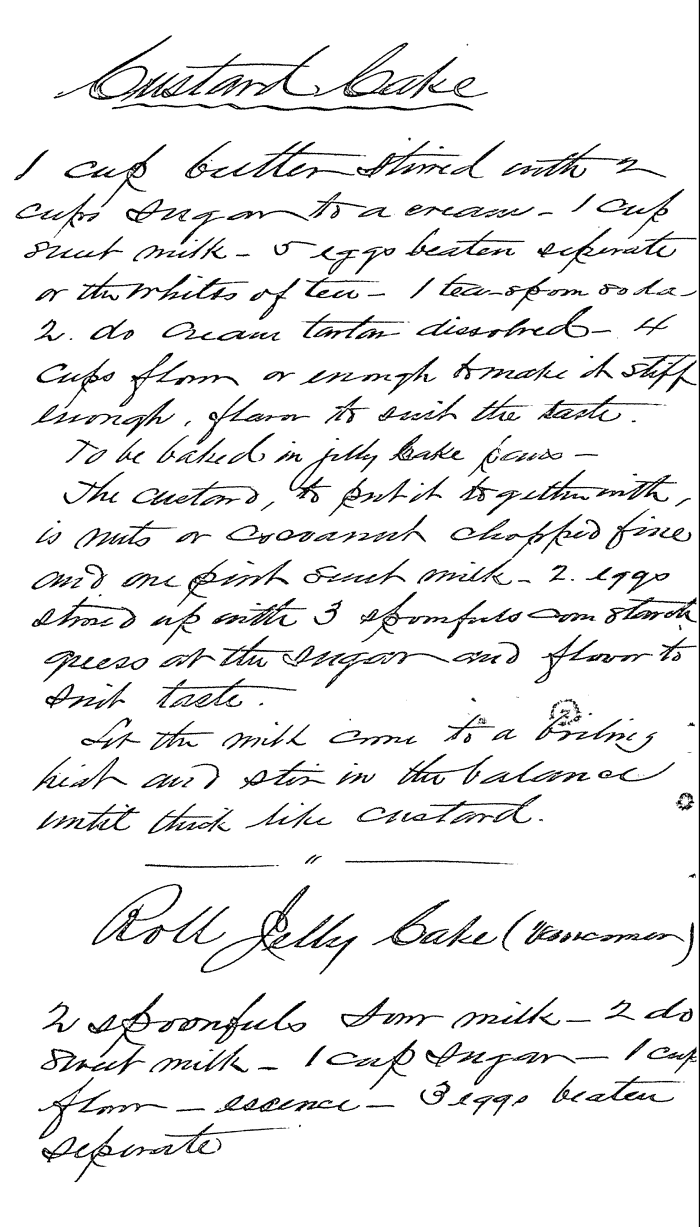 Custard Cake
1 cup butter stirred with 2
cups sugar to a cream - 1 cup
sweet milk - 5 eggs beaten seperate
or the whites of ten - 1 tea-spoon soda -
2. do cream tartar dissolved - 4
cups flour or enough to make it stiff
enough, flavor to suit the taste.
To be baked in jelly cake pans -
The custard, to put it together with,
is nuts or cocoanut chopped fine
and one pint sweet milk - 2. eggs
stired up with 3 spoonfuls corn starch
guess at the sugar and flavor to
suit taste.
Let the milk come to a boiling
heat and stir in the balance
until thick like custard.
"
Roll Jelly Cake (
2 spoonfuls sour milk - 2 do
sweet milk - 1 cup sugar - 1 cup
flour - essence - 3 eggs beaten
seperate